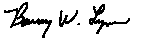 Barry W. Lynn